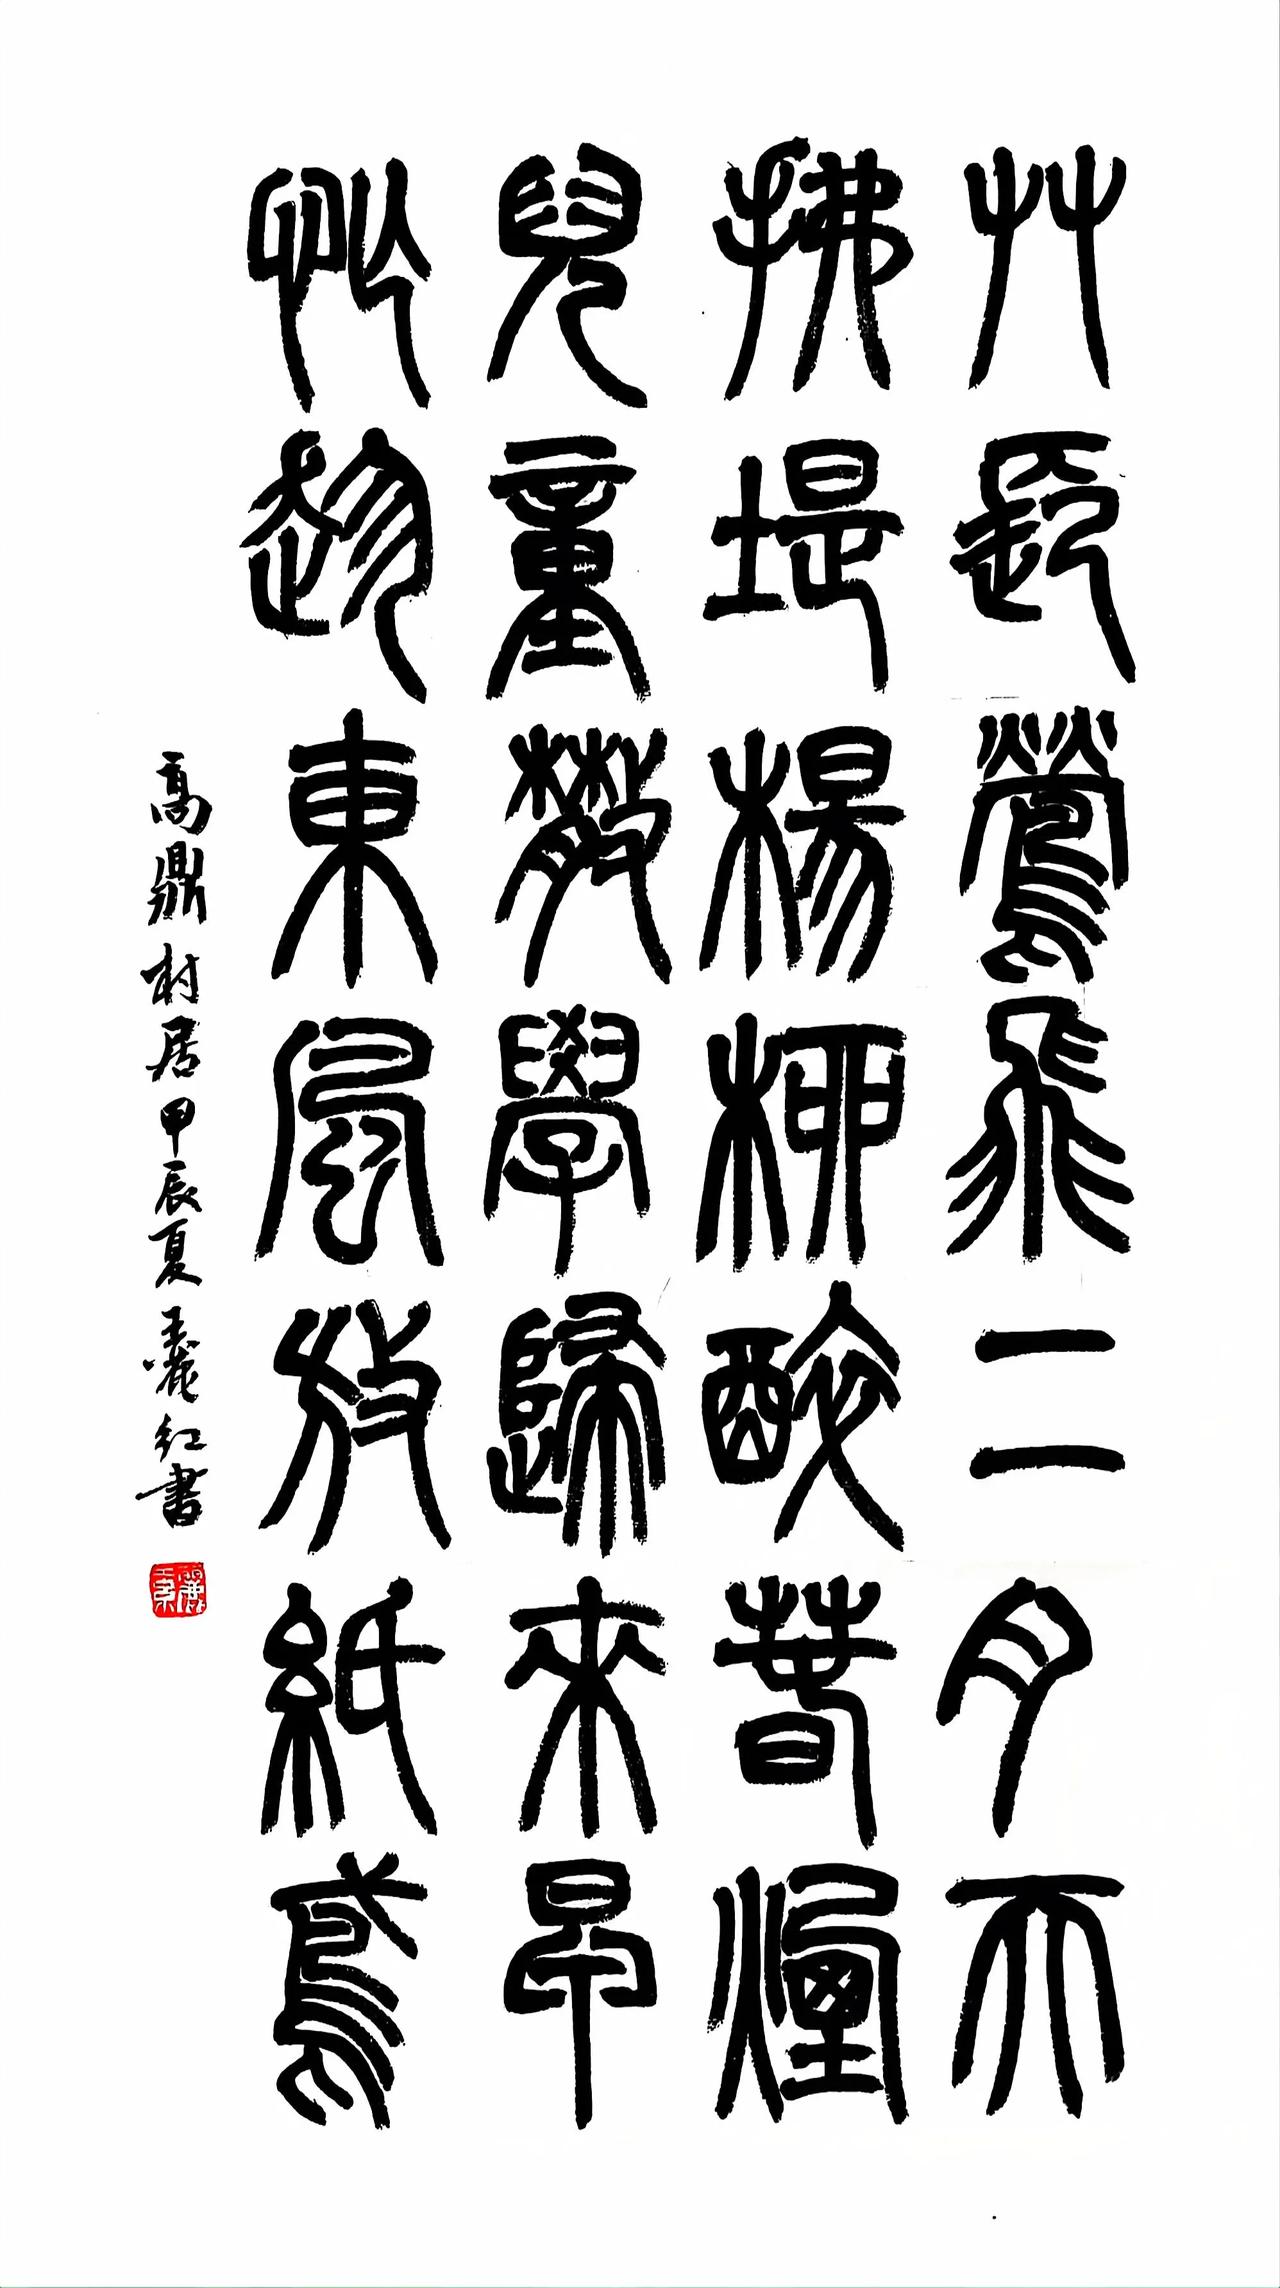 艸長鶯飛二月天
拂堤楊柳醉春煙
兒童散學歸來早
忙趁東風放紙鳶
高鼎村居甲辰夏王麗紅書